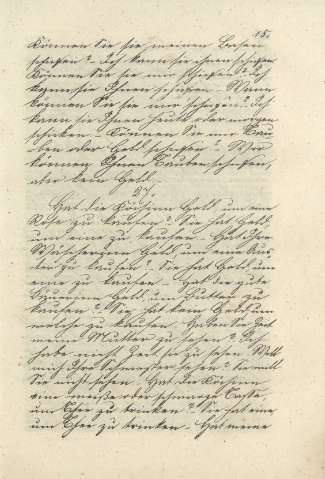 15.
Können Sie sie meinen Basen
schicken? Ich kann sie ihnen schicken
Können Sie sie mir schicken? Ich
kann sie Ihnen schicken. Wann
können Sie sie mir schicken? Ich
kann sie Ihnen heute oder morgen
schicken. Können Sie mir Tau
ben oder Geld schicken? Wir
können Ihnen Tauben schicken,
aber kein Geld.
27.
Hat die Köchinn Geld um eine
Rose zu kaufen? Sie hat Geld
um eine zu kaufen. Hat Ihre
Wäscherinn Geld um
zu kaufen? Sie hat Geld um
eine zu kaufen. Hat die gute
Bäuerinn Geld um Butter zu
kaufen? Sie hat kein Geld um
welche zu kaufen. Haben Sie Zeit
meine Mutter zu sehen? Ich
habe nicht Zeit sie zu sehen. Will
mich Ihre Schwester sehen? Sie will
Sie nicht sehen. Hat die Köchinn
eine weiße oder schwarze Tasse,
um Thee zu trinken? Sie hat eine
um Thee zu trinken. Hat meine